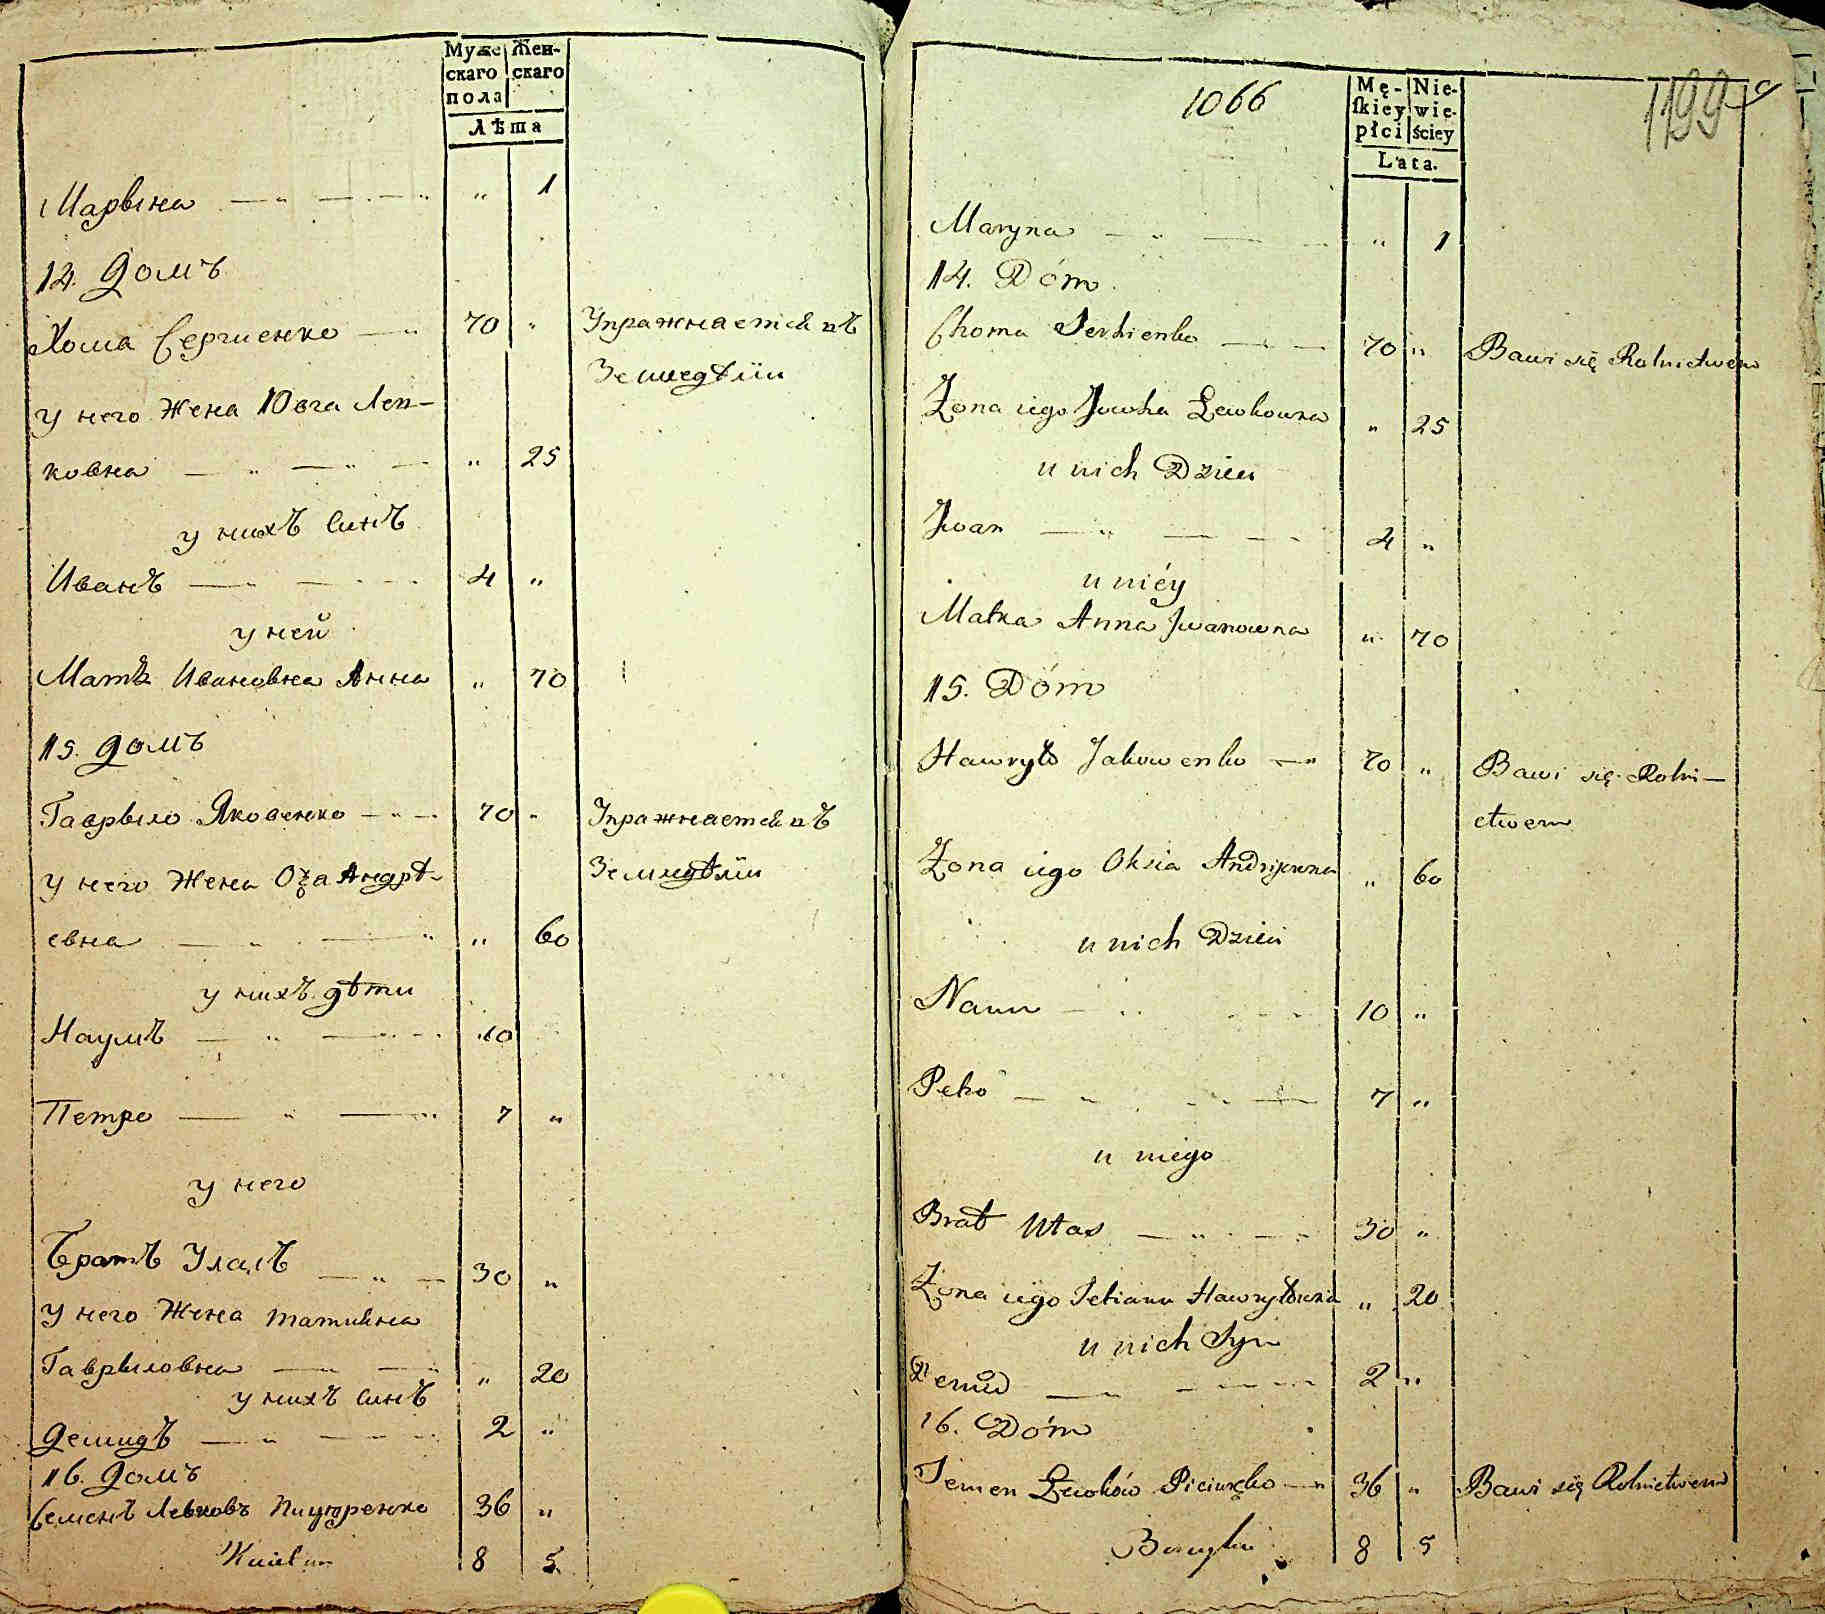 Муже Жен-
скаго скаго
пола
Лѣта
Марына " 1
14. Домъ
Хома Сергиенко 70 " Упражнается въ
Земледѣлiи
у него Жена Ювга Лев-
ковна " 25
у нихъ Синъ
Иванъ 4 "
у ней
Мать Ивановна Анна " 70
15. Домъ
Гаврыло Яковенко 70 " Упражнается въ
Земледѣлiи
у него Жена Оѯа Андрѣ-
евна " 60
у нихъ дѣти
Наумъ 10
Петро 7 "
у него
Братъ Уласъ 30 "
у него Жена татияна
Гаврыловна " 20
у нихъ Синъ
Демидъ 2 "
16. Домъ
Семенъ Левковъ 36 "
8 5
1066
1199
Mę- Nie-
ſkiey wie-
płci ściey
Lata.
Maryna " 1
14. Dóm
Choma Serhienko 70 " Bawi się Rolnictwem
Żona iego Juwha Lewkowna " 25
u nich Dzieci
Jwan 4 "
u niéy
Matka Anna Jwanowna " 70
15. Dóm
Hawryło Jakowenko 70 " Bawi się Rolni-
ctwem
Żona iego Oksia Andrijowna " 60
u nich Dzieci
Naum 10 "
Petro 7 "
u niego
Brat Ułas 30 "
Żona iego Tetiana Hawryłowna " 20
u nich Syn
Demid 2 "
16. Dóm
Semen Lewków 36 " Bawi się Rolnictwem
8 5